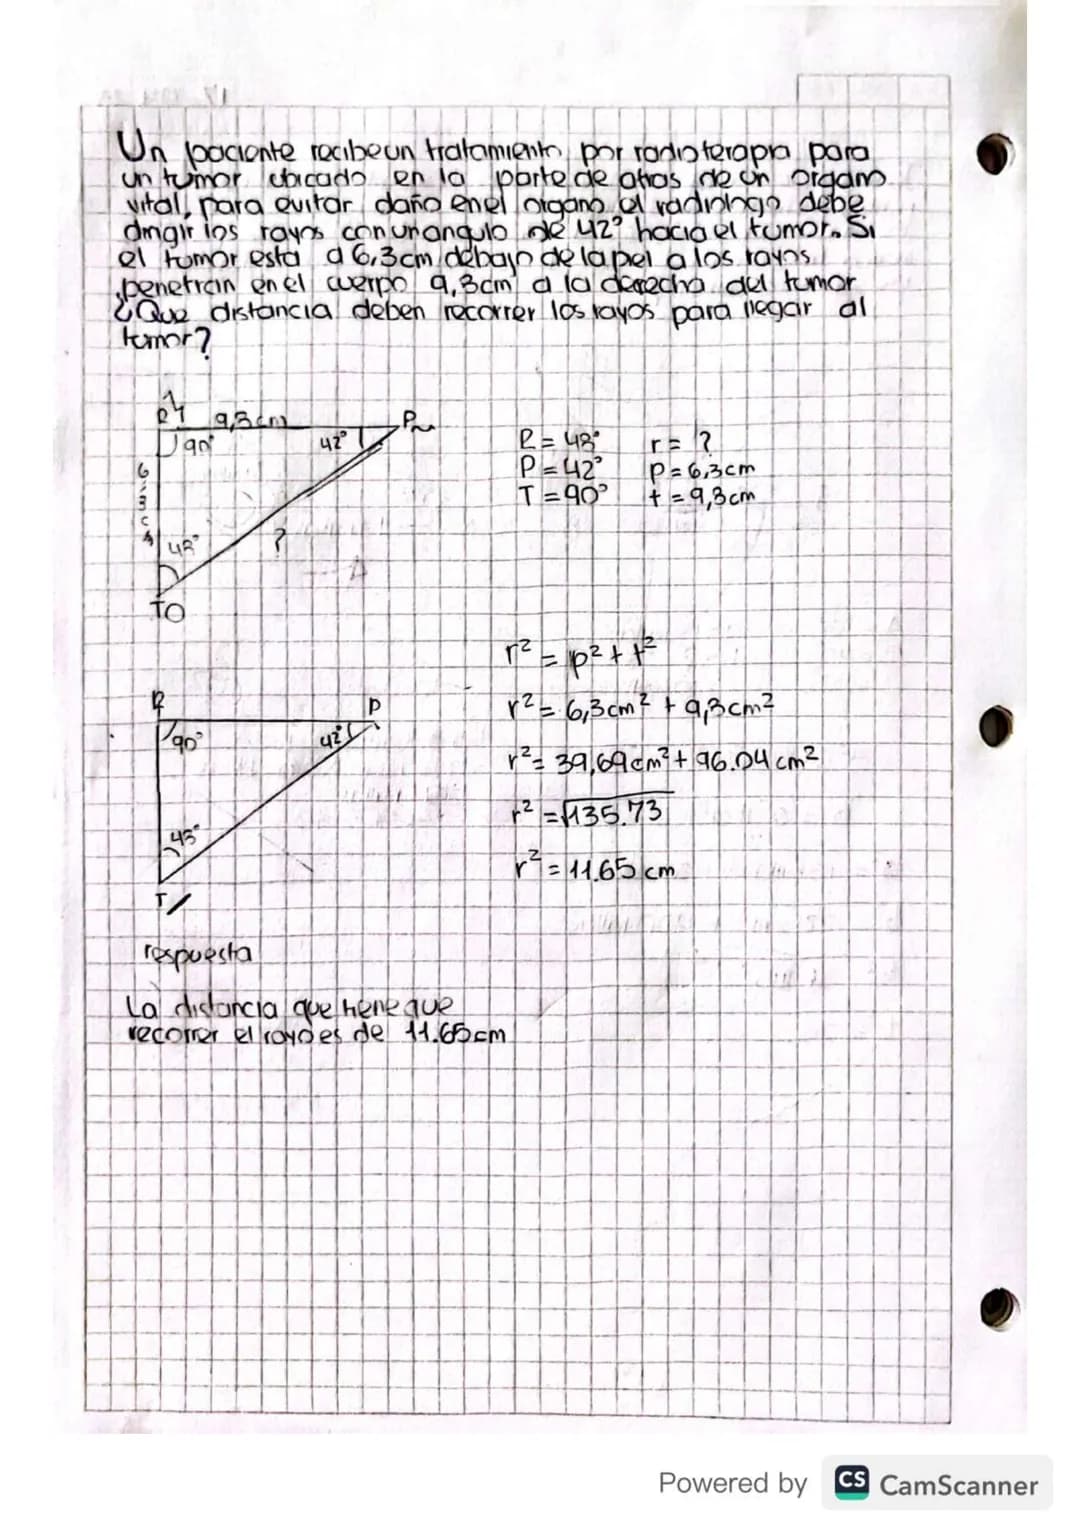 Un paciente recibe un tratamiento por radioterapia para
un tumor ubicado en la parte de atras de un organo
vital, para evitar daño en el organo el radiologo debe
dirigir los rayos con un angulo de 42° hacia el tumor. Si
el tumor esta a 6,3cm debajo de la piel a los rayos
penetran en el cuerpo 9,3cm a la derecha del tumor
¿Que distancia deben recorrer los rayos para llegar al
tumor?
9,3cm P
90° 42°
R = 48° r = ?
P = 42° p = 6,3cm
T = 90° t = 9,3cm
6,3cm
48° ?
TO
r² = p² + t²
R P
r² = 6,3cm² + 9,3cm²
90° 42°
r² = 39,69cm² + 96.04cm²
r² = √135.73
48°
r² = 11.65 cm
T
respuesta
La distancia que tiene que
recorrer el rayo es de 11.65cm
Powered by CS CamScanner